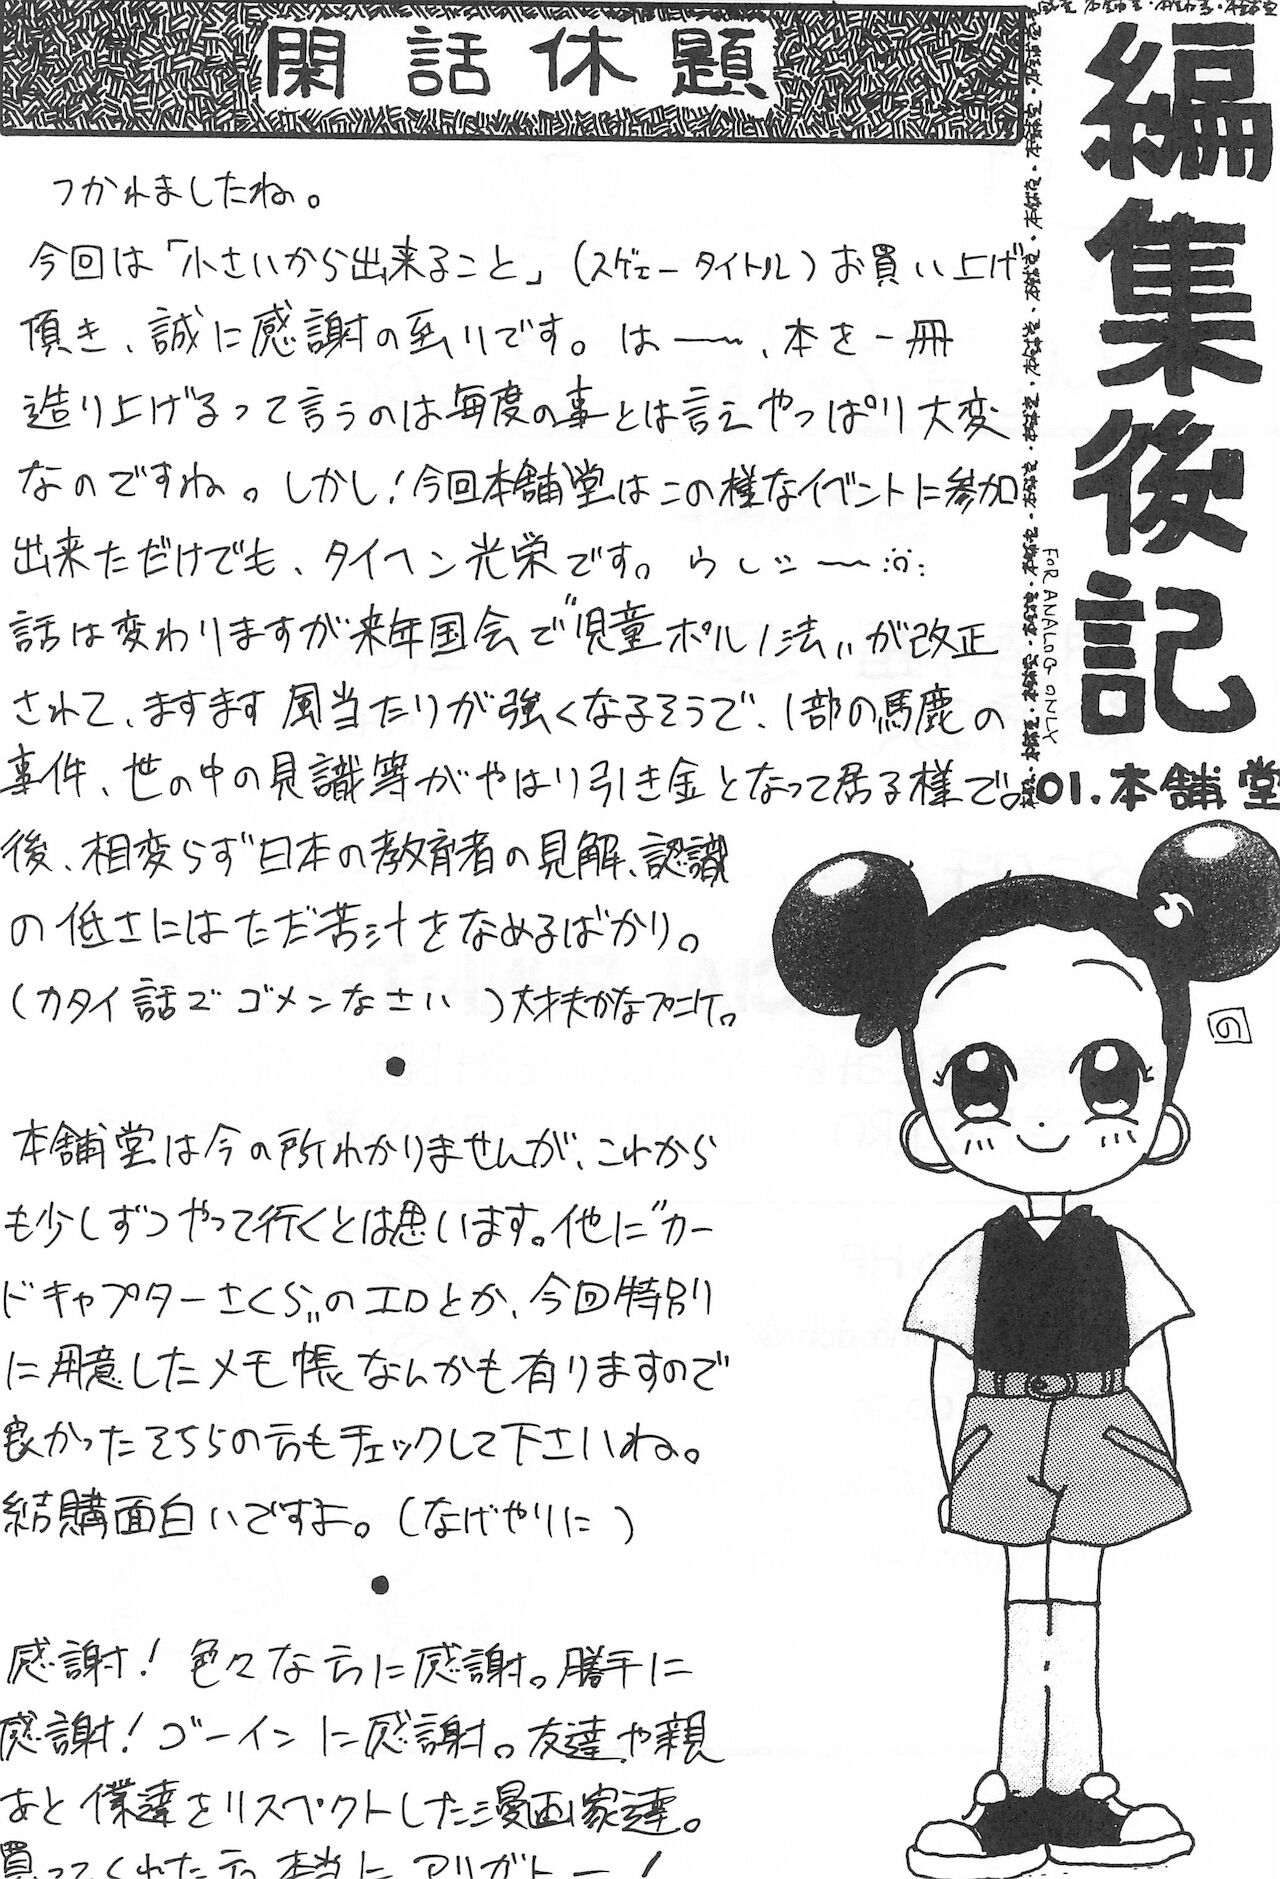 閑話休題
編集後記
FOR ANALOG ONLY
01.本舗堂
つかれましたね。
今回は「小さいから出来ること」(スゲェータイトル)お買い上げ
頂き、誠に感謝の至りです。はー〜、本を一冊
造り上げるって言うのは毎度の事とは言えやっぱり大変
なのですね。しかし!今回本舗堂はこの様なイベントに参加
出来ただけでも、タイヘン光栄です。らしい〜
話は変わりますが来年国会で"児童ポルノ法〃が改正
されて、ますます風当たりが強くなるそうで、1部の馬鹿の
事件、世の中の見識等がやはり引き金となって居る様で。
後、相変らず日本の教育者の見解、認識
の低さにはただ苦汁をなめるばかり。
(カタイ話でゴメンなさい)大丈夫かな
●
本舗堂は今の所わかりませんが、これから
も少しずつやって行くとは思います。他に"カー
ドキャプターさくら〃のエロとか、今回特別
に用意したメモ帳なんかも有りますので
良かったそちらの方もチェックして下さいね。
結購面白いですよ。(なげやりに)
●
感謝!色々な方に感謝。勝手に
感謝!ゴーインに感謝。友達や親
あと僕達をリスペクトした漫画家達。
買ってくれた方本当にアリガトー!
の